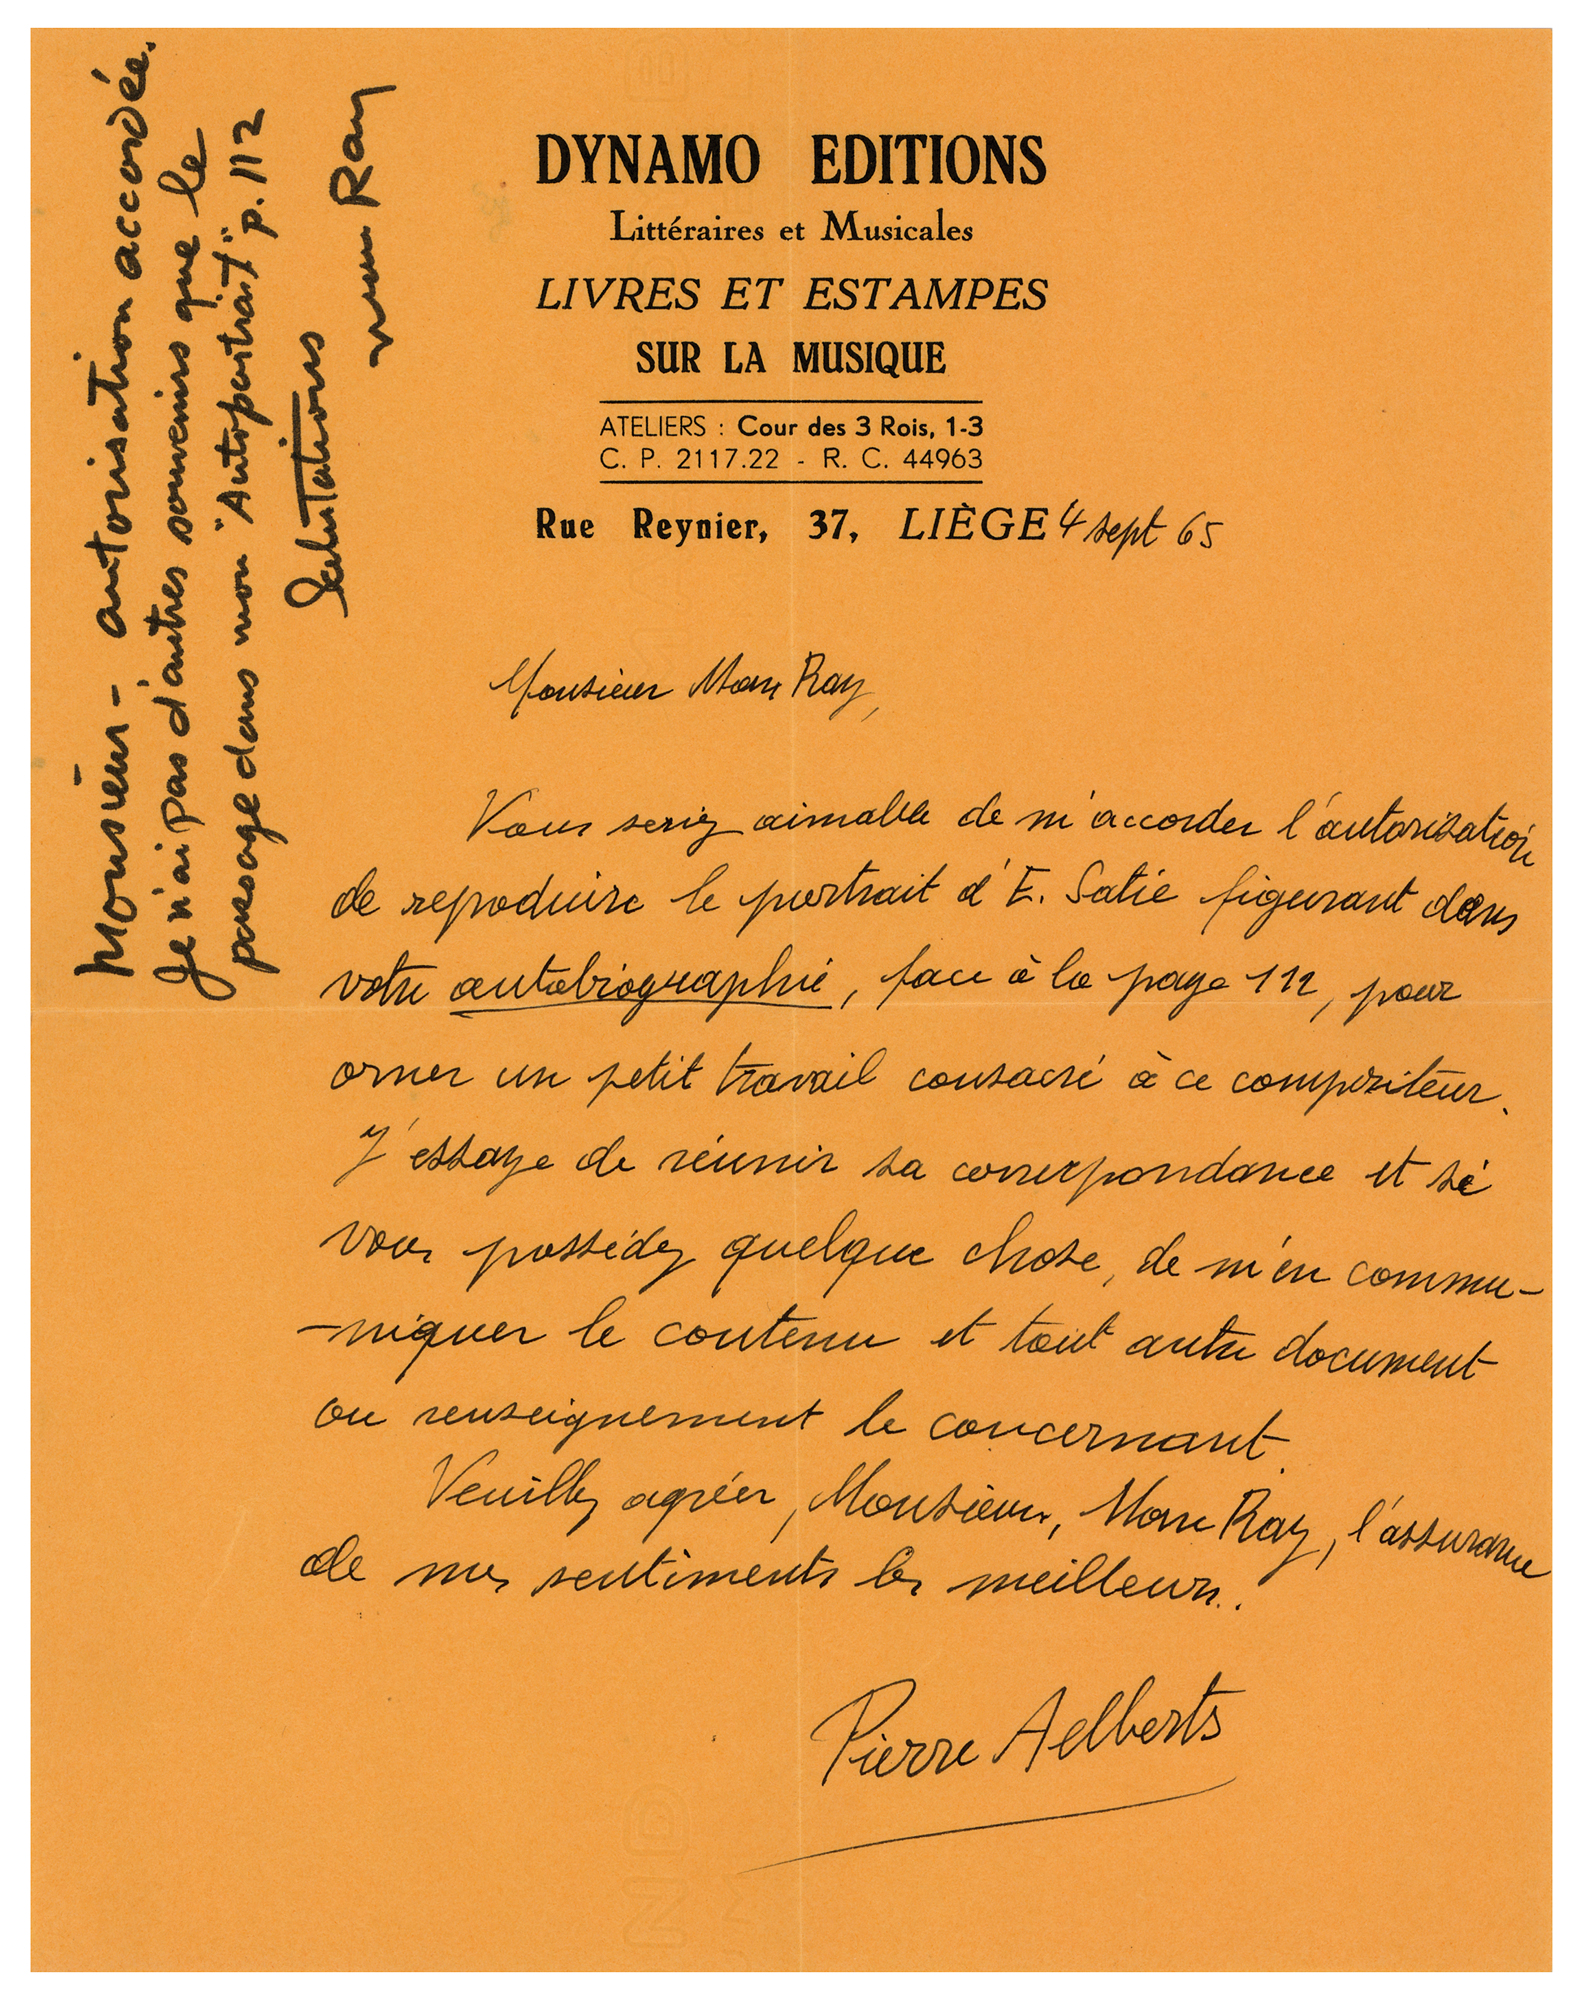 DYNAMO EDITIONS
Littéraires et Musicales
LIVRES ET ESTAMPES
SUR LA MUSIQUE
ATELIERS : Cour des 3 Rois, 1-3
C. P. 2117.22 - R. C. 44963
Rue Reynier, 37, LIÈGE 4 sept 65
Monsieur Man Ray,
Vous seriez aimable de m'accorder l'autorisation
de reproduire le portrait d'E. Satie figurant dans
votre autobiographie, face à la page 112, pour
orner un petit travail consacré à ce compositeur.
J'essaye de réunir sa correspondance et si
vous possédez quelque chose, de m'en commu-
-niquer le contenu et tout autre document
ou renseignement le concernant.
Veuillez agréer, Monsieur, Man Ray, l'assurance
de mes sentiments les meilleurs.
Pierre Aelberts
Monsieur - autorisation accordée.
Je n'ai pas d'autres souvenirs que le
passage dans mon "Autoportrait" p. 112
Salutations
Man Ray